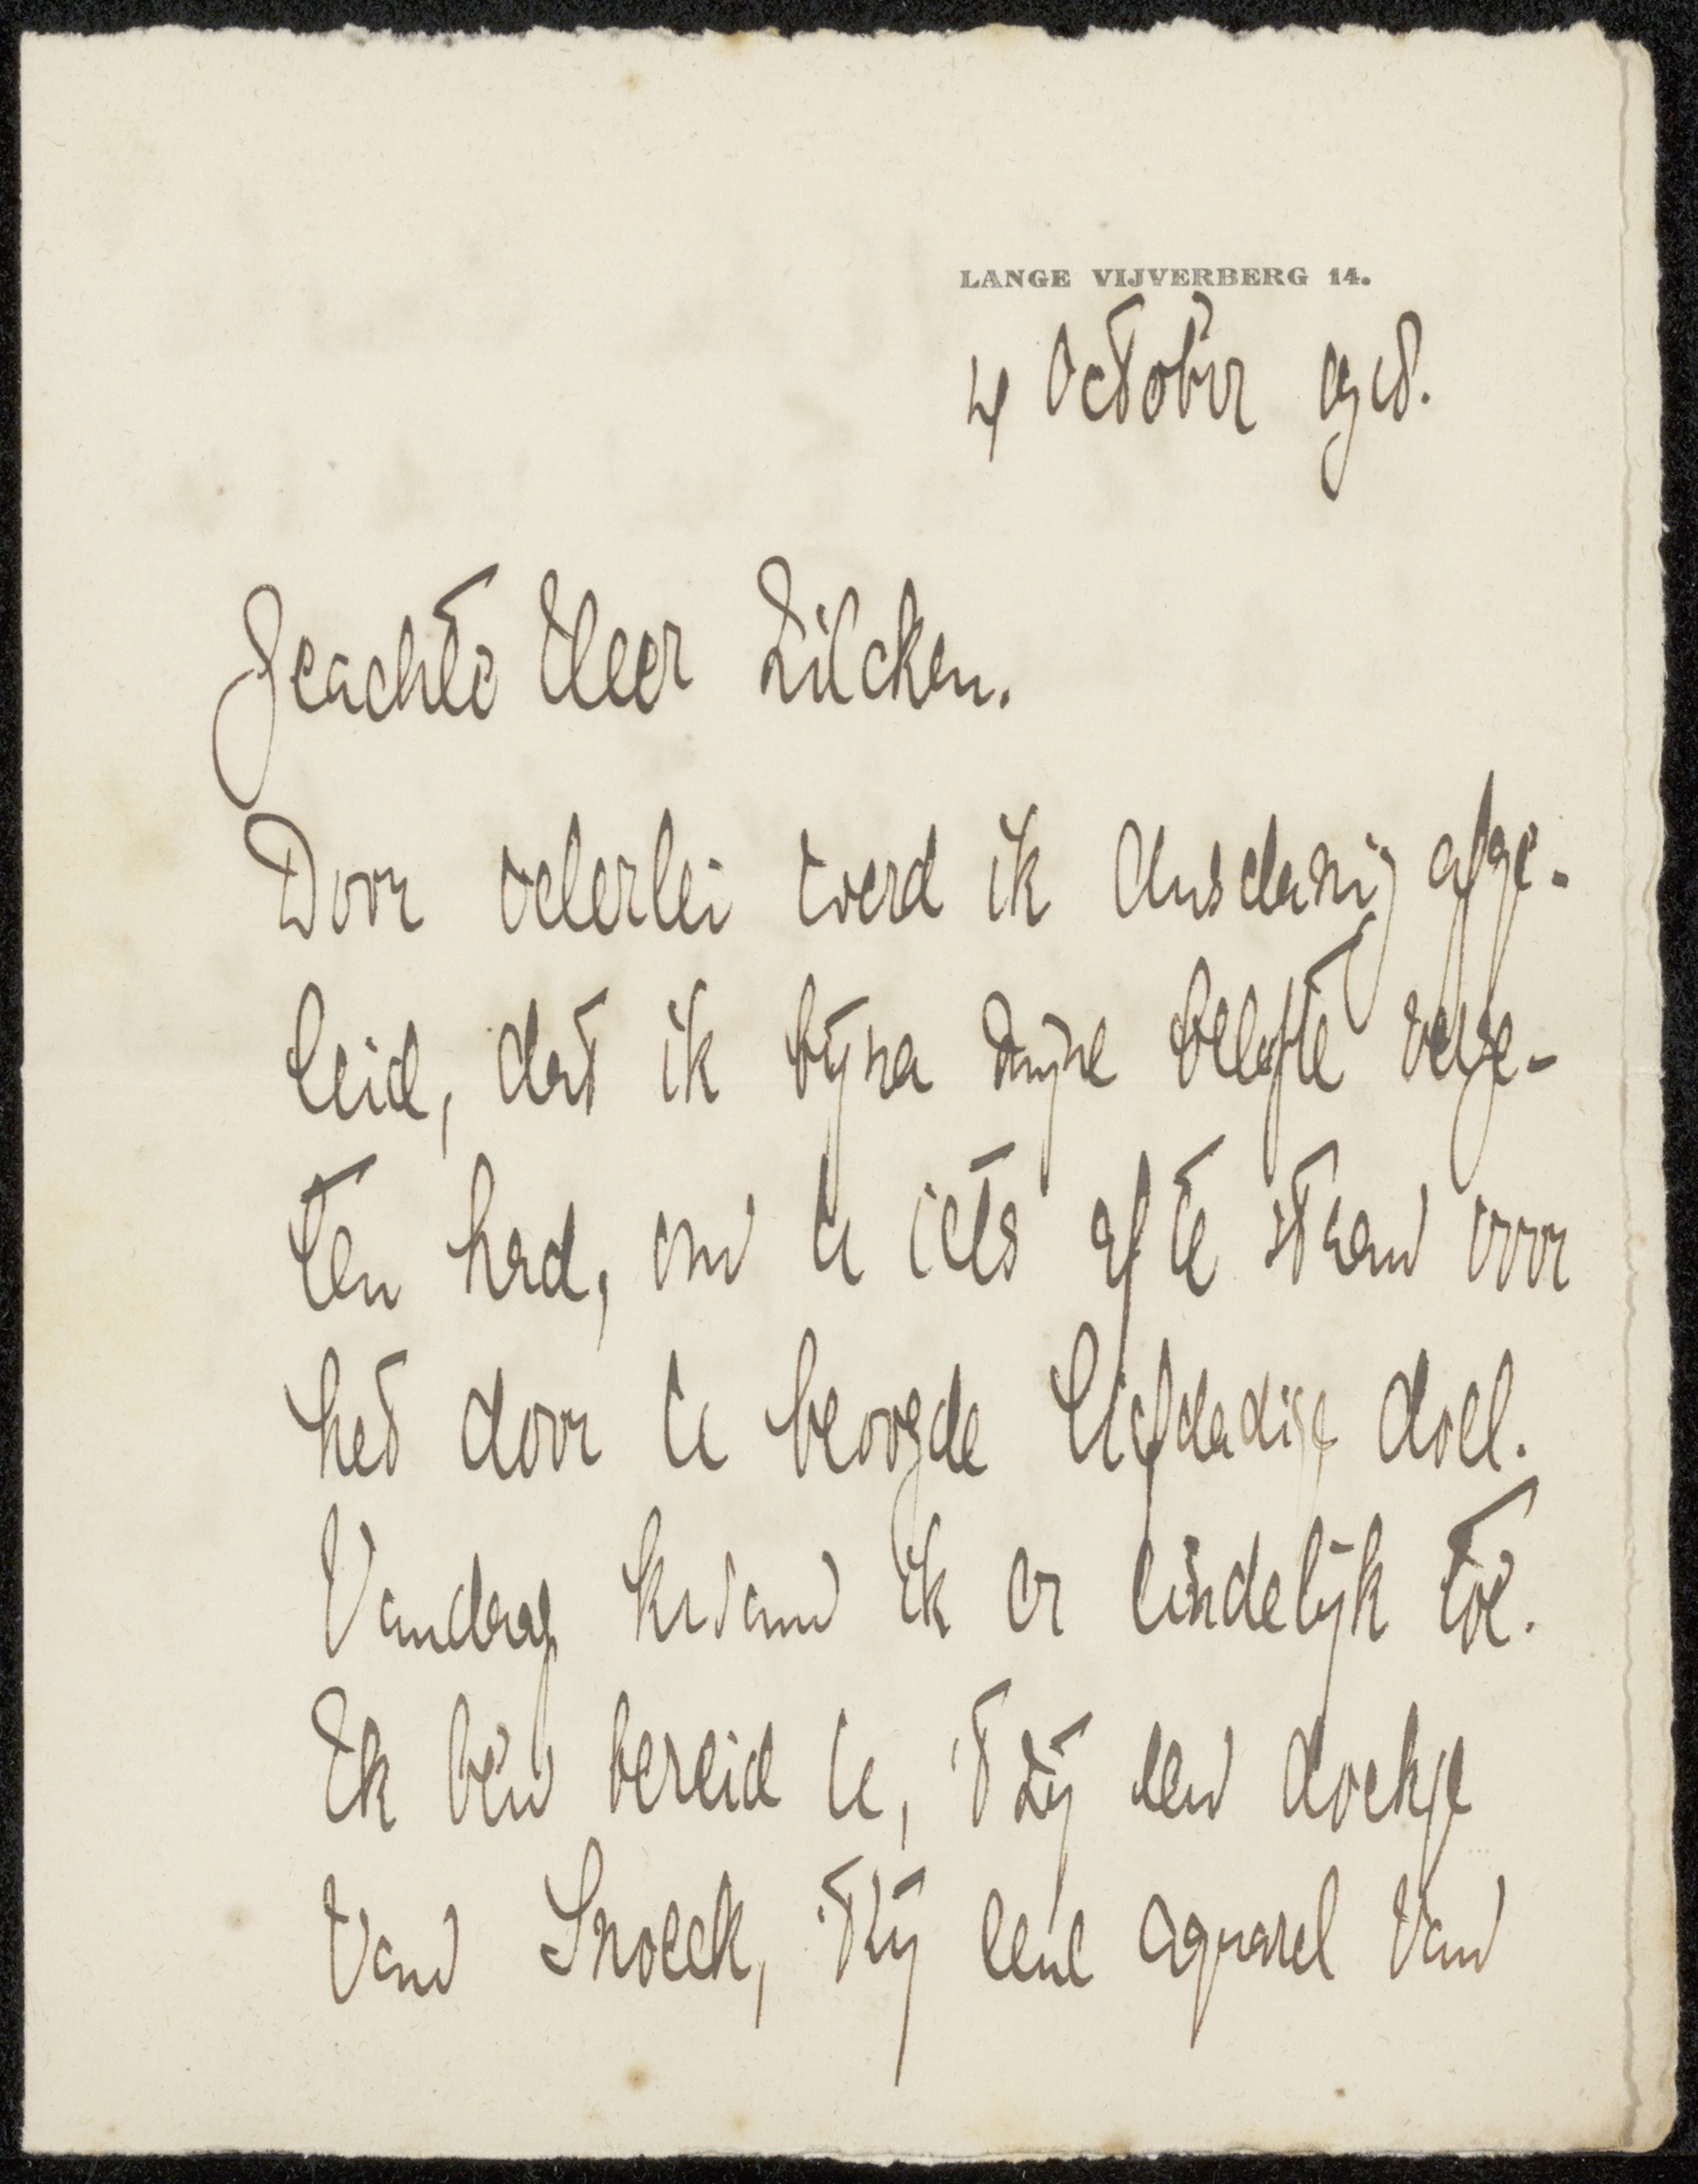 LANGE VIJVERBERG 14.
4 October 918.
Geachte Heer Zilcken.
Door velerlei werd ik dusdanig afge-
leid, dat ik bijna mijne belofte verge-
ten had, om U iets af te staan voor
het door U beoogde liefdadige doel.
Vandaag kwam ik er eindelijk toe.
Ik ben bereid U, 't zij een doekje
van Snoeck, 't zij eene aquarel van